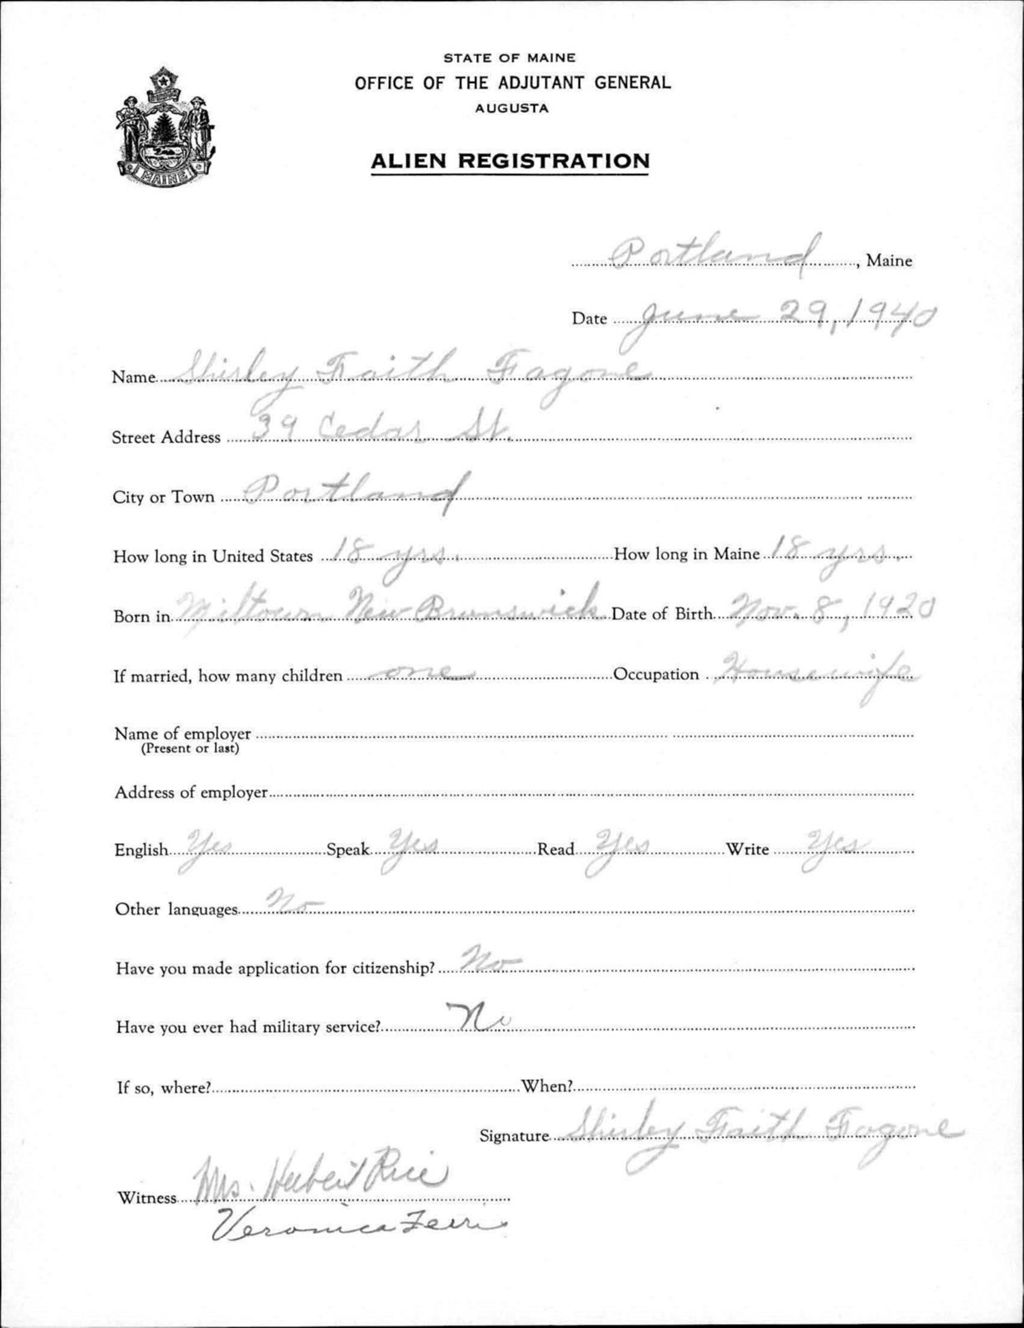 STATE OF MAINE
OFFICE OF THE ADJUTANT GENERAL
AUGUSTA
ALIEN REGISTRATION
MAINE
Portland, Maine
Date June 29, 1940
Name Shirley Faith Fagone
Street Address 39 Cedar St.
City or Town Portland
How long in United States 18 yrs. How long in Maine 18 yrs.
Born in Miltown New Brunswick Date of Birth Nov. 8, 1920
If married, how many children one Occupation Housewife
Name of employer
(Present or last)
Address of employer
English Yes Speak Yes Read Yes Write Yes
Other languages No
Have you made application for citizenship? No
Have you ever had military service? No
If so, where? When?
Signature Shirley Faith Fagone
Witness Mrs. Herbert Rice
Veronica Ferris